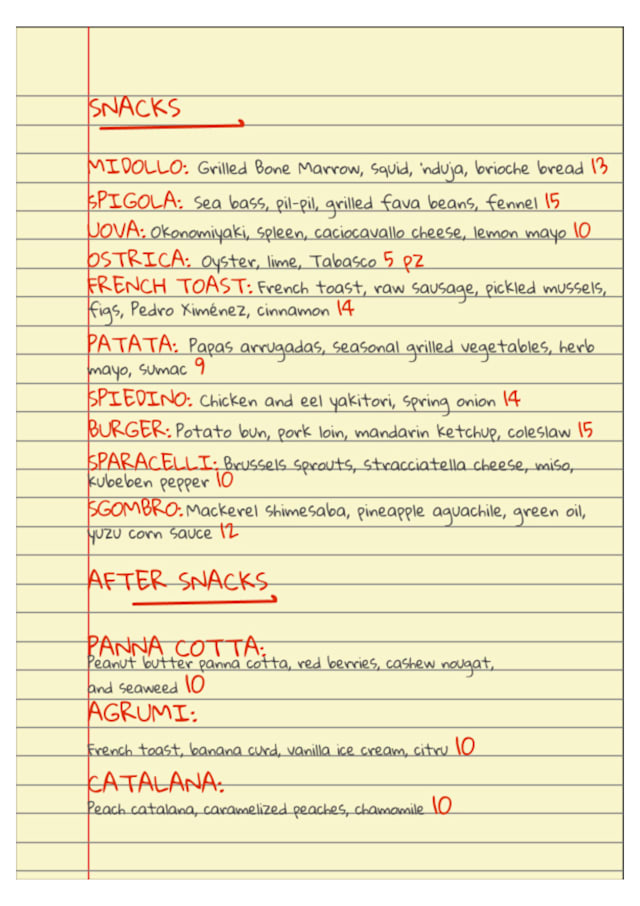 SNACKS
MIDOLLO: Grilled Bone Marrow, squid, 'nduja, brioche bread 13
SPIGOLA: Sea bass, pil-pil, grilled fava beans, fennel 15
UOVA: Okonomiyaki, spleen, caciocavallo cheese, lemon mayo 10
OSTRICA: Oyster, lime, Tabasco 5 pz
FRENCH TOAST: French toast, raw sausage, pickled mussels,
figs, Pedro Ximénez, cinnamon 14
PATATA: Papas arrugadas, seasonal grilled vegetables, herb
mayo, sumac 9
SPIEDINO: Chicken and eel yakitori, spring onion 14
BURGER: Potato bun, pork loin, mandarin ketchup, coleslaw 15
SPARACELLI: Brussels sprouts, stracciatella cheese, miso,
kubeben pepper 10
SGOMBRO: Mackerel shimesaba, pineapple aguachile, green oil,
yuzu corn sauce 12
AFTER SNACKS
PANNA COTTA:
Peanut butter panna cotta, red berries, cashew nougat,
and seaweed 10
AGRUMI:
French toast, banana curd, vanilla ice cream, citru 10
CATALANA:
Peach catalana, caramelized peaches, chamomile 10